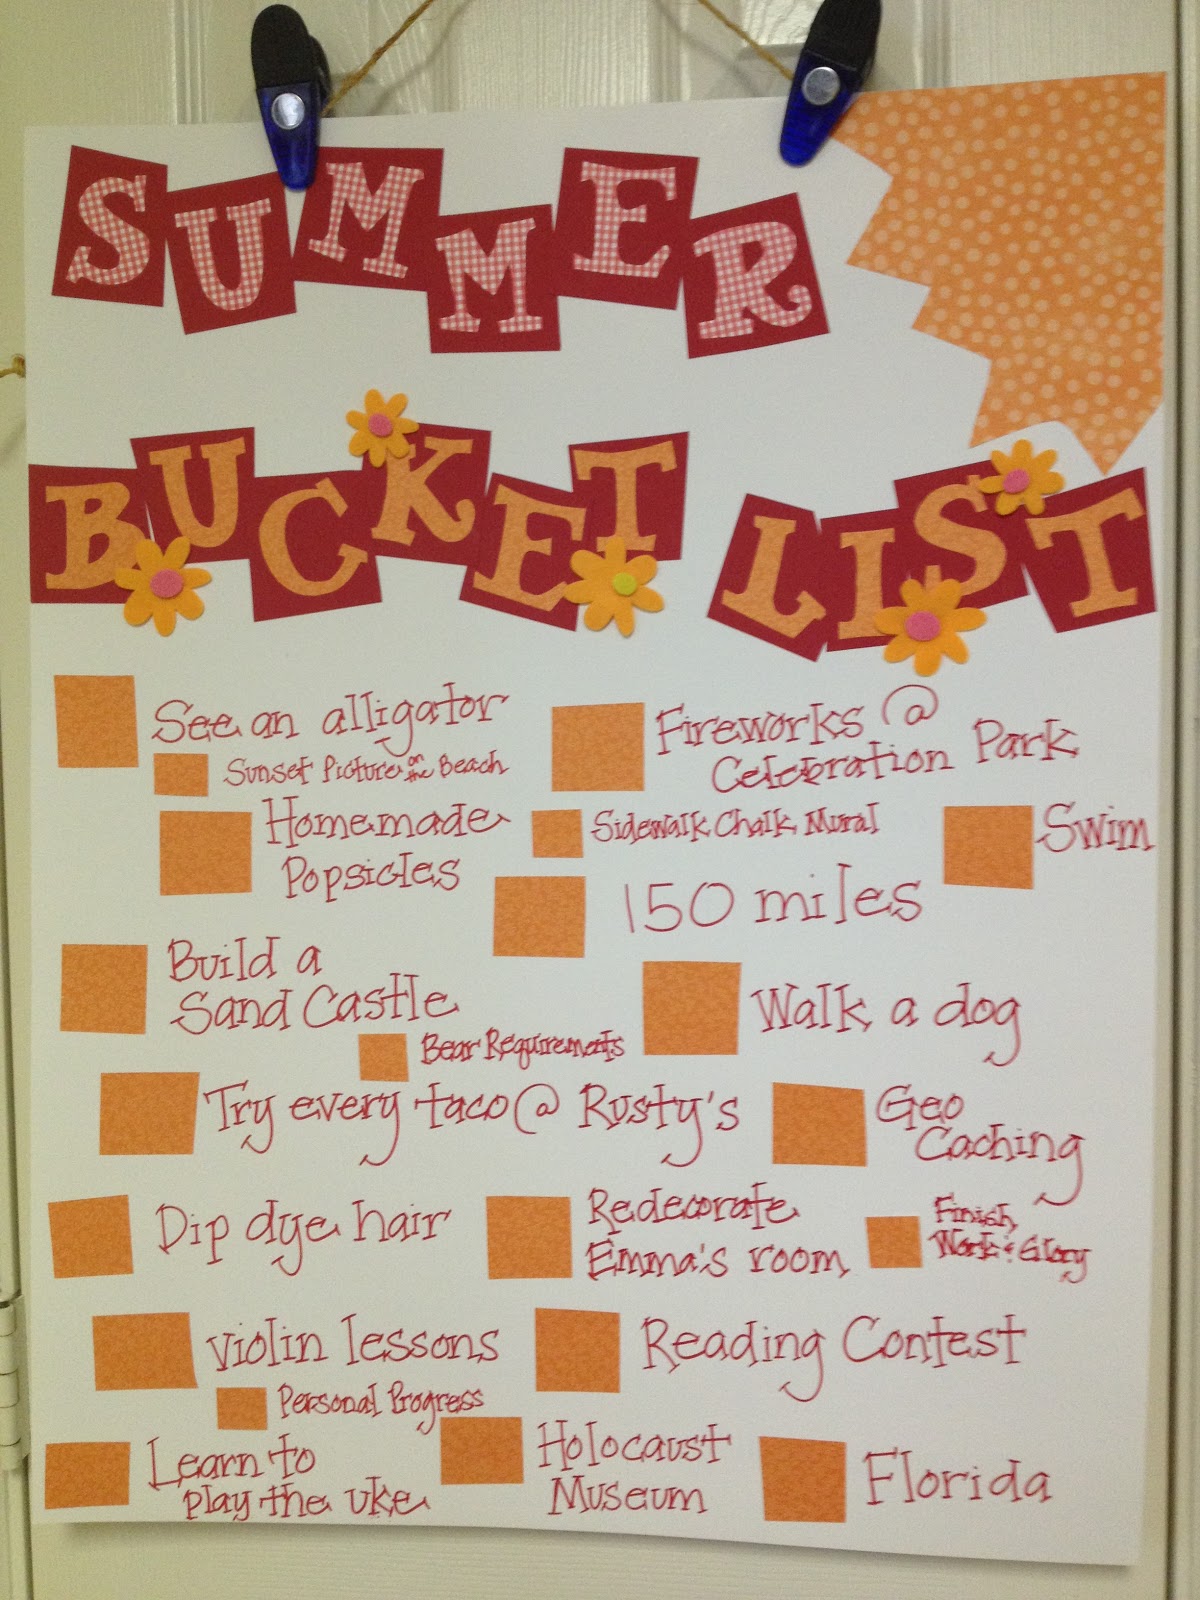 SUMMER
BUCKET LIST
See an alligator
Sunset Picture on the Beach
Fireworks @
Celebration Park
Homemade
Popsicles
Sidewalk Chalk Mural
Swim
150 miles
Build a
Sand Castle
Walk a dog
Bear Requirements
Try every taco @ Rusty's
Geo
Caching
Dip dye hair
Redecorate
Emma's room
Finish
Work & Glory
Violin lessons
Reading Contest
Personal Progress
Learn to
play the uke
Holocaust
Museum
Florida